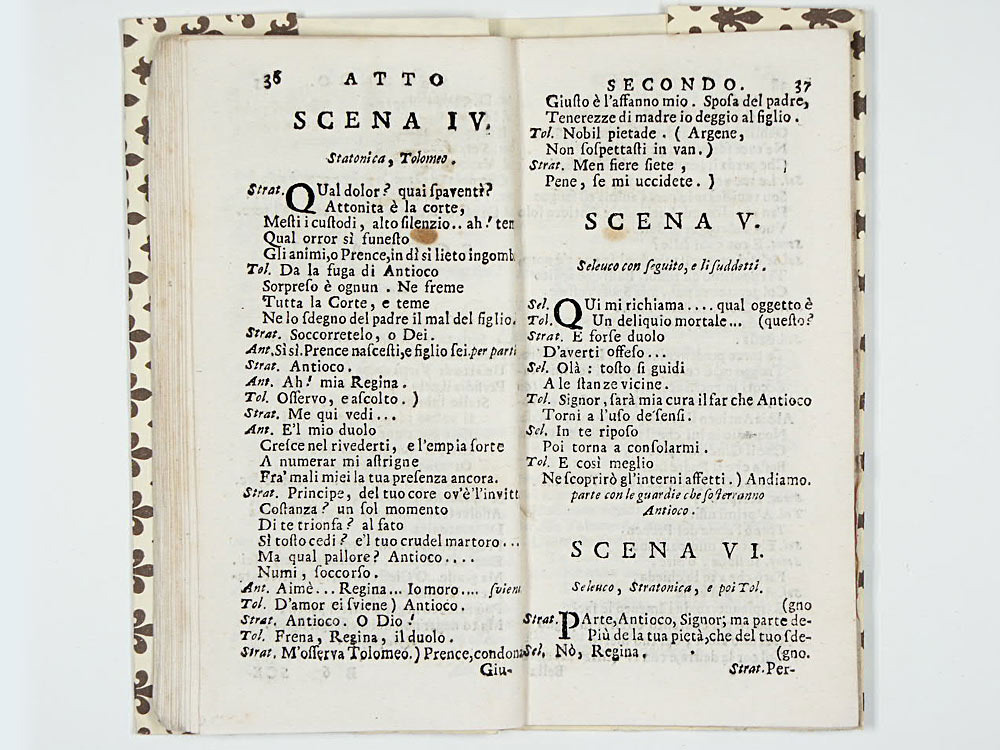 36 ATTO
SCENA IV.
Statonica, Tolomeo.
Strat. QUal dolor? quai ſpaventi?
Attonita è la corte,
Meſti i cuſtodi, alto ſilenzio.. ah! tem
Qual orror sì funeſto
Gli animi, o Prence, in dì si lieto ingomb
Tol. Da la fuga di Antioco
Sorpreſo è ognun. Ne freme
Tutta la Corte, e teme
Ne lo ſdegno del padre il mal del figlio.
Strat. Soccorretelo, o Dei.
Ant. Sì sì. Prence naſceſti, e figlio ſei. per parti
Strat. Antioco.
Ant. Ah! mia Regina.
Tol. Oſſervo, e aſcolto.)
Strat. Me qui vedi...
Ant. E'l mio duolo
Creſce nel rivederti, e l'empia ſorte
A numerar mi aſtrigne
Fra' mali miei la tua preſenza ancora.
Strat. Principe, del tuo core ov'è l'invitt
Coſtanza? un ſol momento
Di te trionfa? al fato
Sì toſto cedi? e'l tuo crudel martoro...
Ma qual pallore? Antioco....
Numi, ſoccorſo.
Ant. Aimè... Regina... Io moro.... ſvien
Tol. D'amor ei ſviene) Antioco.
Strat. Antioco. O Dio!
Tol. Frena, Regina, il duolo.
Strat. M'oſſerva Tolomeo.) Prence, condona
Giu-
SECONDO. 37
Giuſto è l'affanno mio. Spoſa del padre,
Tenerezze di madre io deggio al figlio.
Tol. Nobil pietade. (Argene,
Non ſoſpettaſti in van.)
Strat. Men fiere ſiete,
Pene, ſe mi uccidete.)
SCENA V.
Seleuco con ſeguito, e li ſuddetti.
Sel. QUi mi richiama.... qual oggetto è
Tol. Un deliquio mortale... (queſto?
Strat. E forſe duolo
D'averti offeſo...
Sel. Olà: toſto ſi guidi
A le ſtanze vicine.
Tol. Signor, ſarà mia cura il far che Antioco
Torni a l'uſo de' ſenſi.
Sel. In te ripoſo
Poi torna a conſolarmi.
Tol. E così meglio
Ne ſcoprirò gl'interni affetti.) Andiamo.
parte con le guardie che ſoſterranno
Antioco.
SCENA VI.
Seleuco, Stratonica, e poi Tol.
(gno
Strat. PArte, Antioco, Signor; ma parte de-
Più de la tua pietà, che del tuo ſde-
Sel. Nò, Regina. (gno.
Strat. Per-